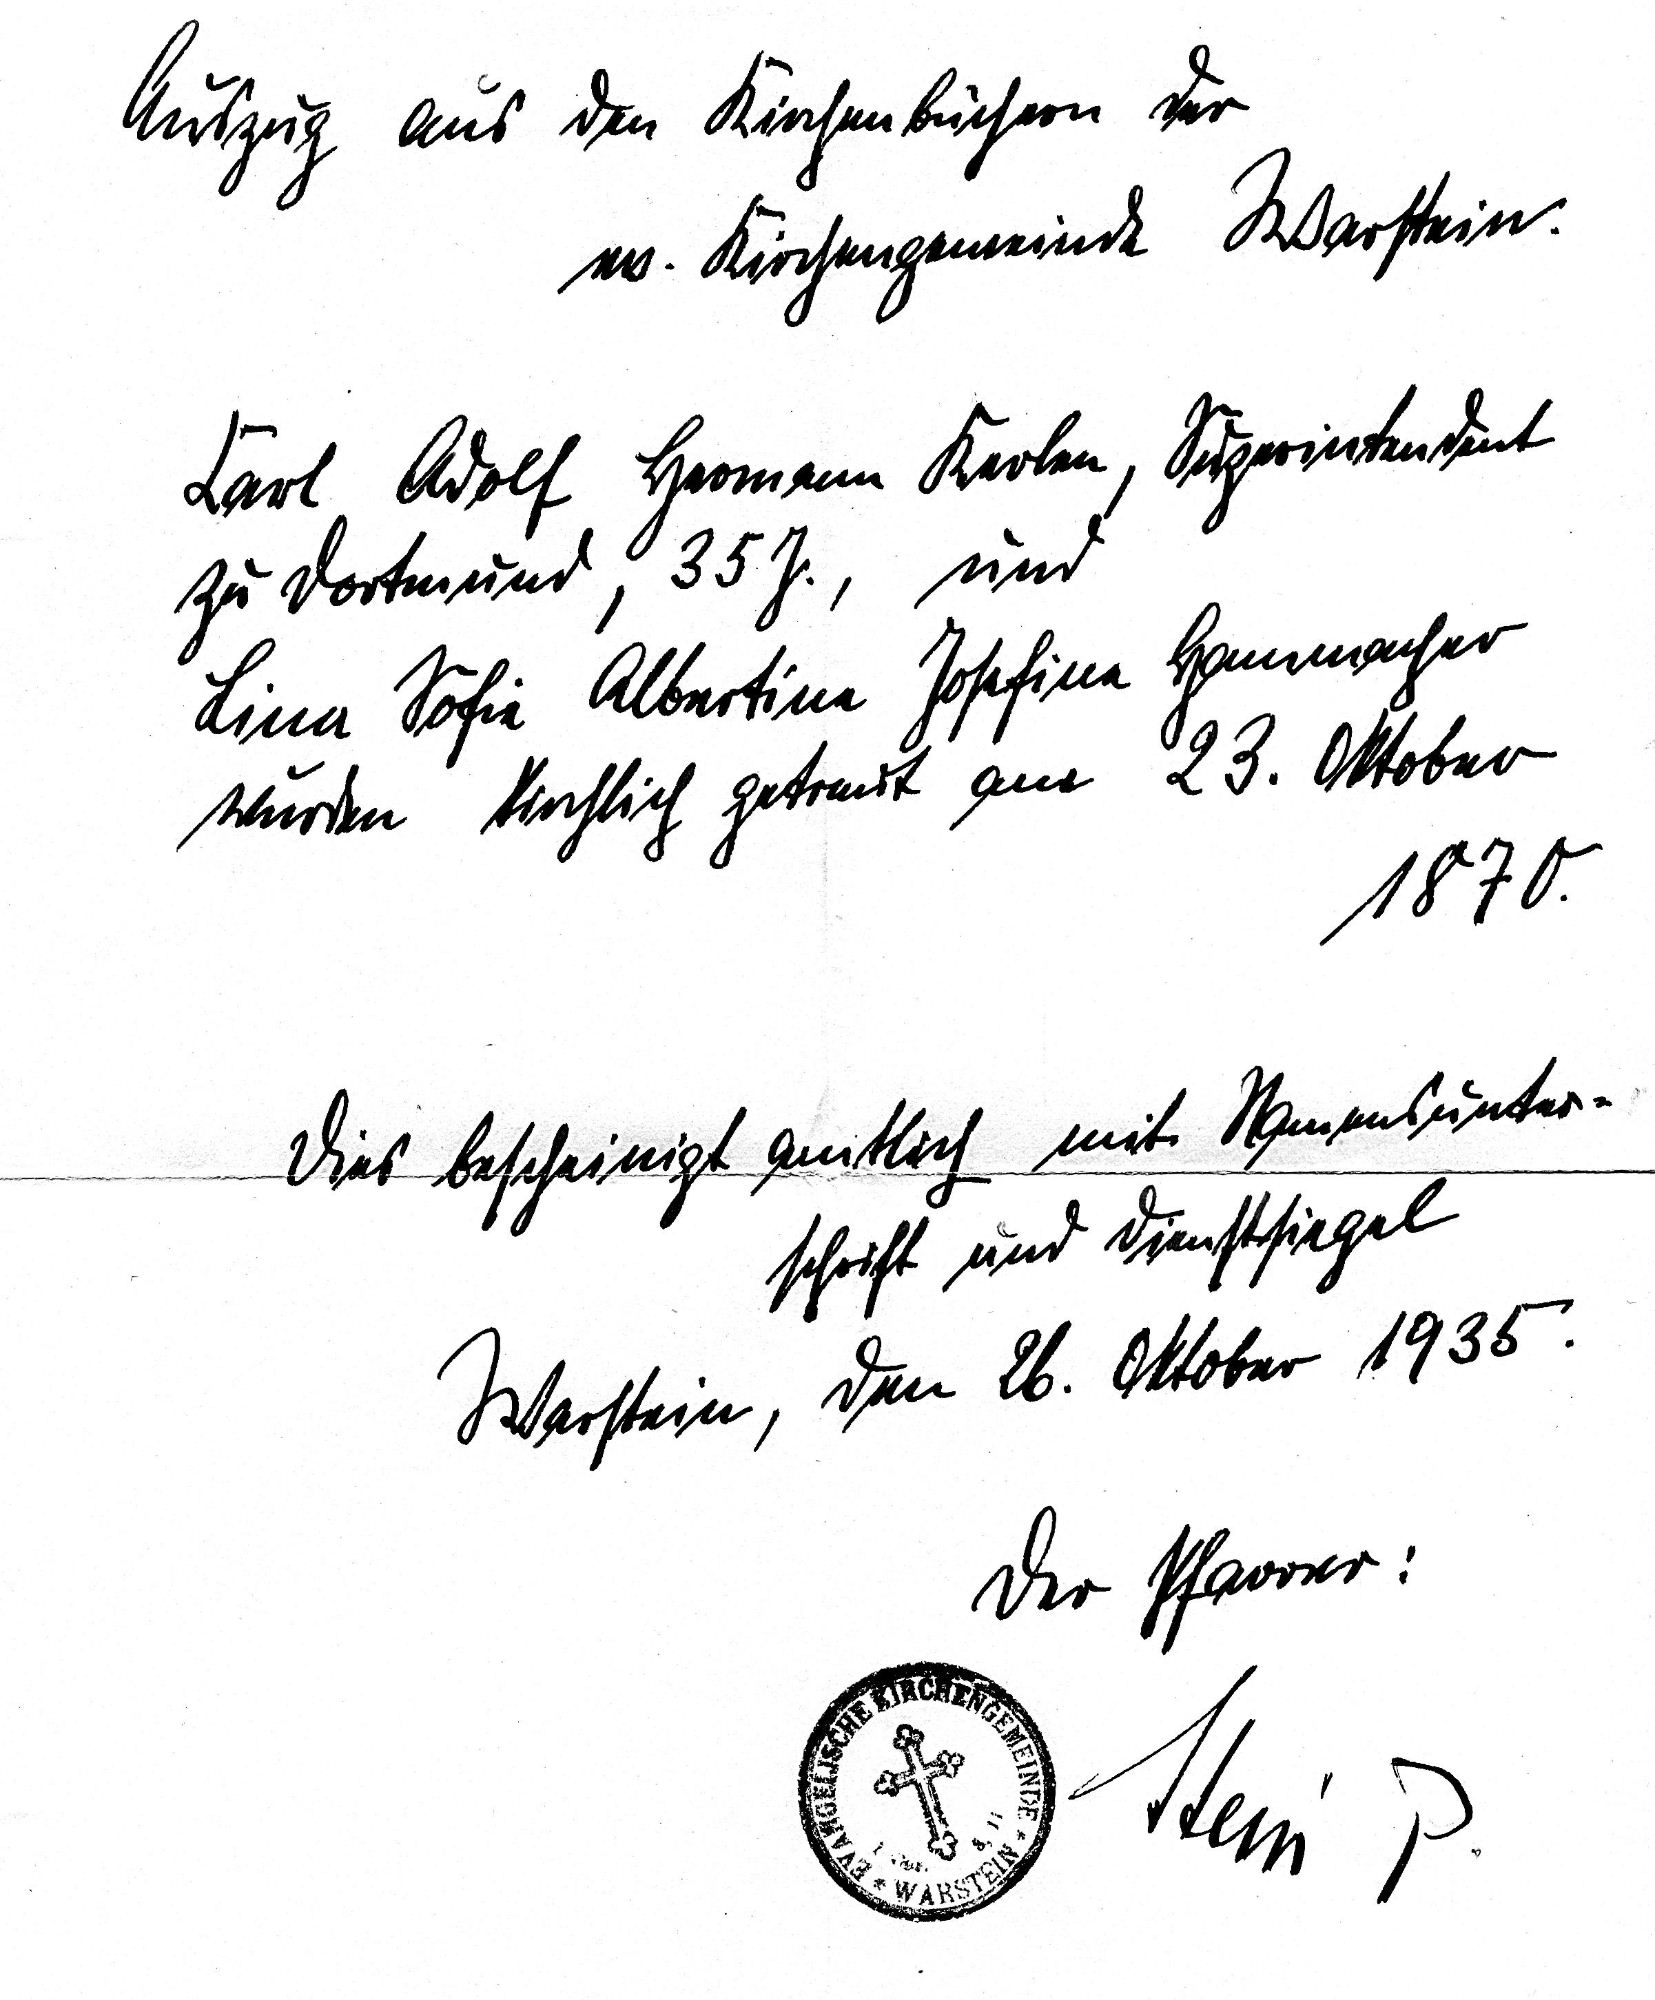 Auszug aus den Kirchenbüchern der
ev. Kirchengemeinde Warstein.
Karl Adolf Hermann Kerlen, Superintendent
zu Dortmund, 35 J., und
Lina Sofie Albertine Josefine Hammacher
wurden kirchlich getraut am 23. Oktober
1870.
Dies bescheinigt amtlich mit Namensunter-
schrift und Dienstsiegel
Warstein, den 26. Oktober 1935.
Der Pfarrer:
Stein P.
EVANGELISCHE KIRCHENGEMEINDE
* WARSTEIN *